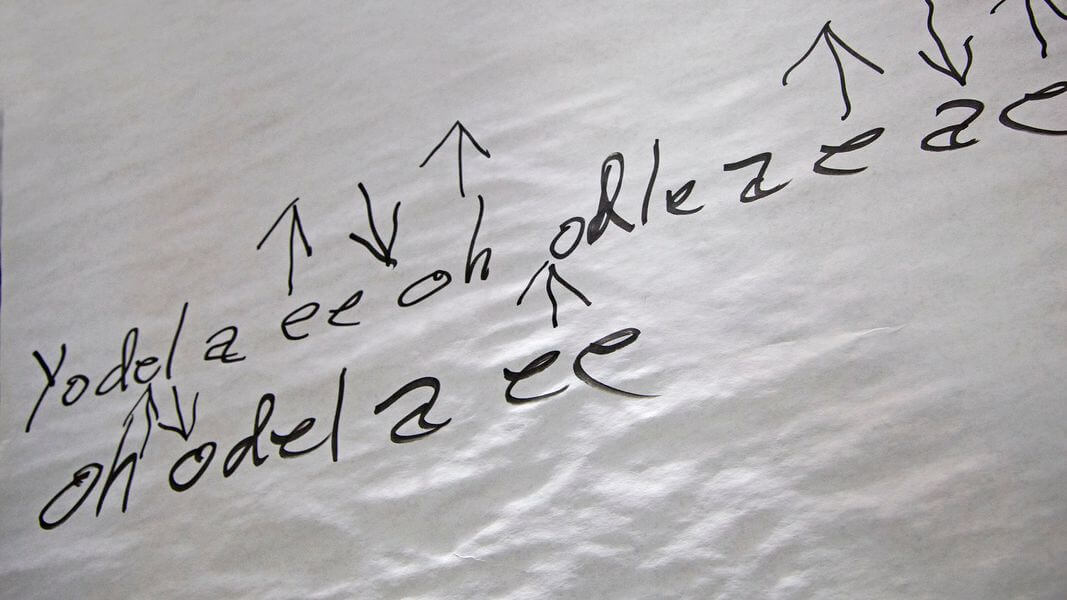 Yodel a ee oh odle a e ae
oh odel a ee